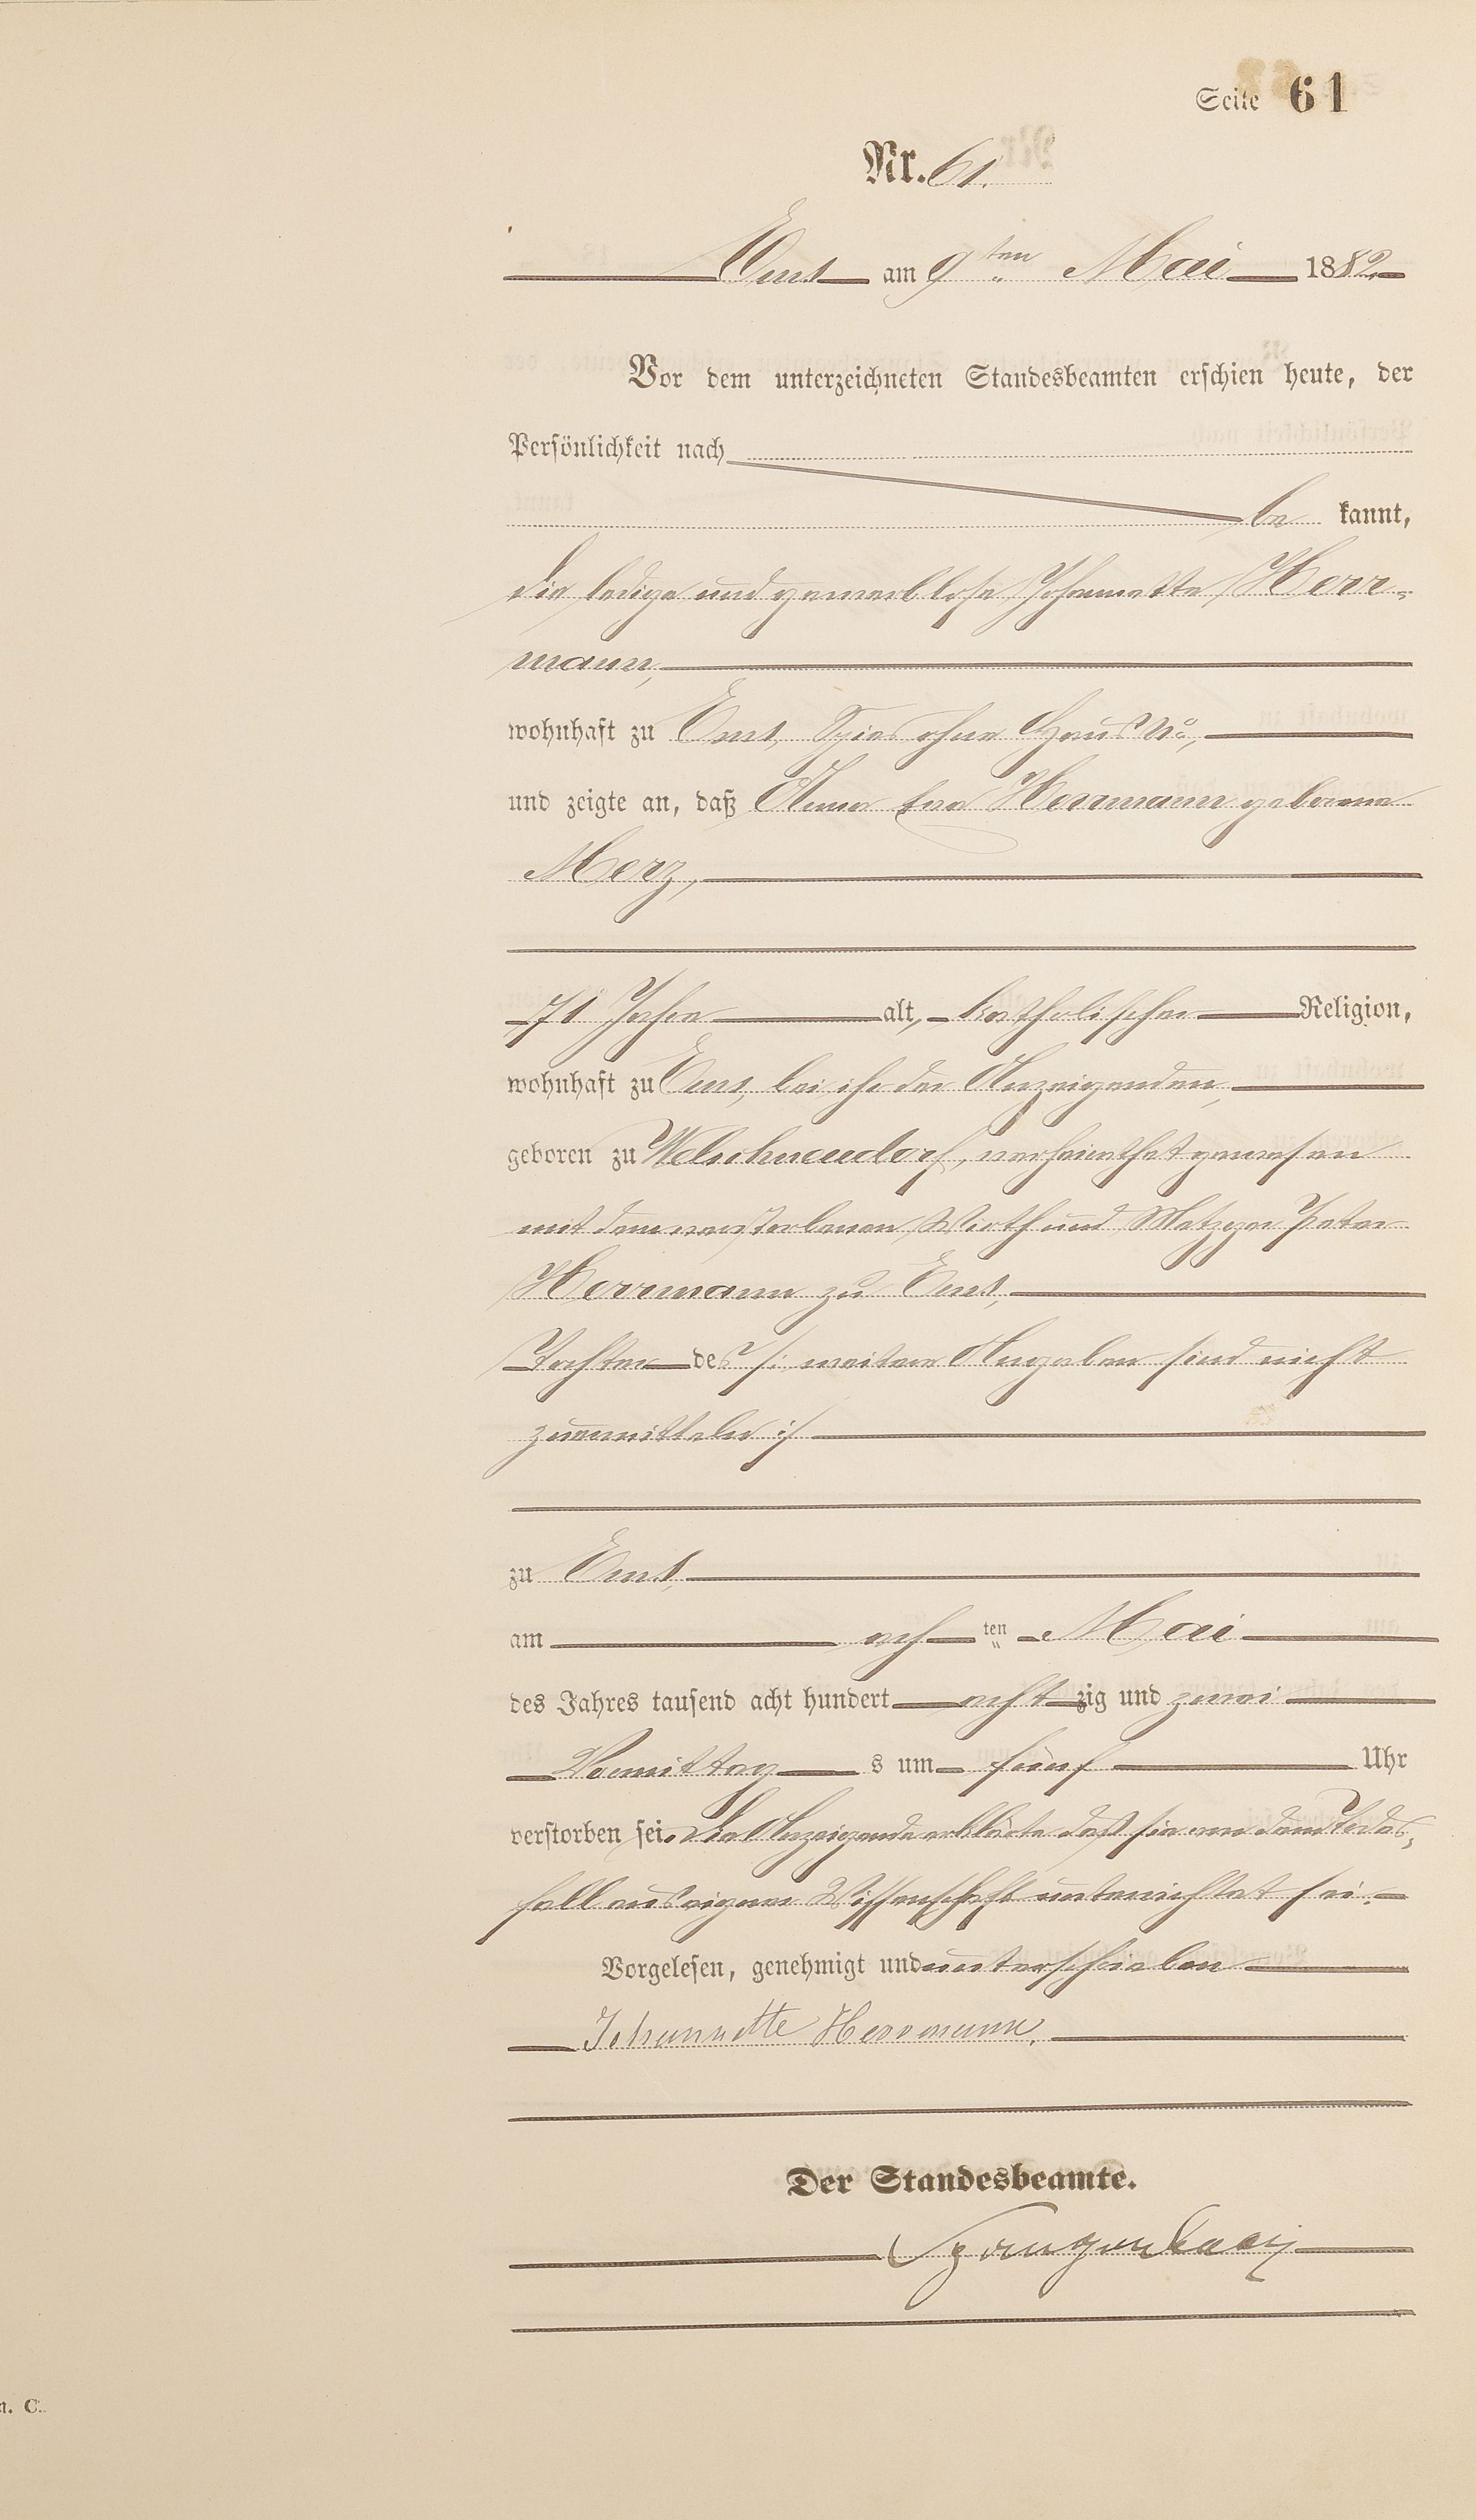 Seite 61
Nr. 61.
Ems am 9ten Mai 1882
Vor dem unterzeichneten Standesbeamten erschien heute, der
Persönlichkeit nach
be kannt,
die ledige und gewerblose Johannette Herr-
mann,
wohnhaft zu Ems, Spies ohne Haus No,
und zeigte an, daß Anna Eva Herrmann geborene
Merz,
71 Jahre alt, katholischer Religion,
wohnhaft zu Ems, bei ihr der Anzeigenden,
geboren zu Welschneudorf, verheirathet gewesen
mit dem verstorbenen Wirth und Metzger Peter
Herrmann zu Ems,
Tochter des /: weitere Angaben sind nicht
zu ermitteln :/
zu Ems,
am ach ten Mai
des Jahres tausend acht hundert acht zig und zwei
Vormittag s um fünf Uhr
verstorben sei. Die Anzeigende erklärte daß sie von dem Todes-
fall aus eigener Wissenschaft unterrichtet sei.
Vorgelesen, genehmigt und unterschrieben
Johannette Herrmann.
Der Standesbeamte.
n. C.